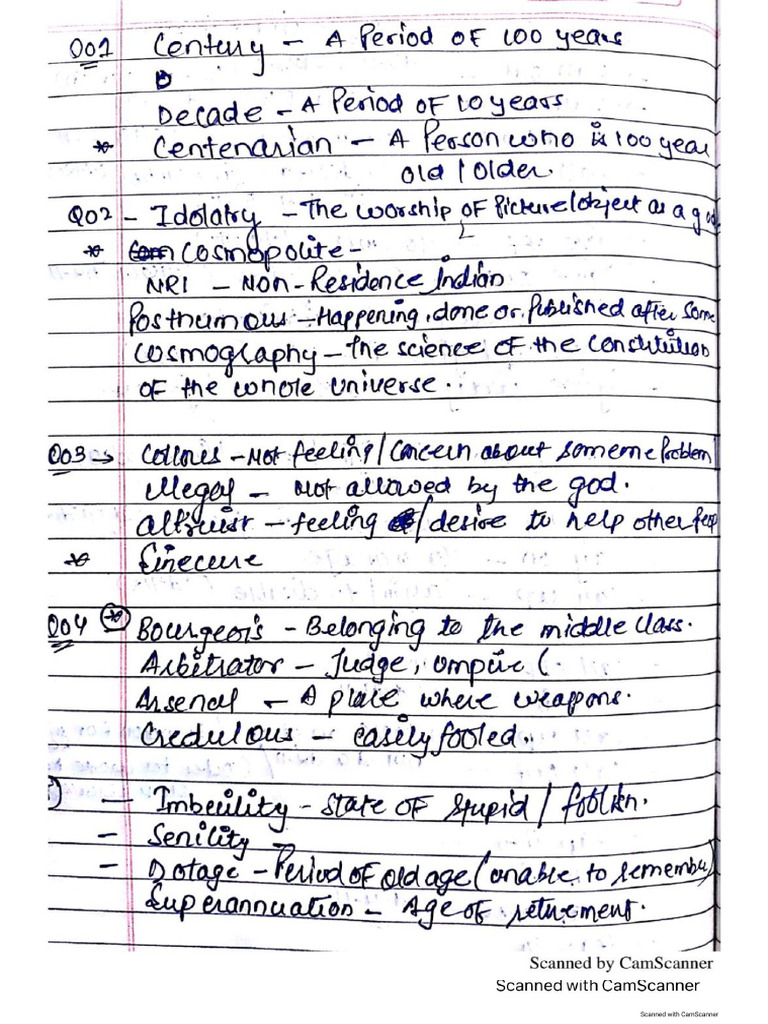 Q01 Century - A Period OF 100 years
D
Decade - A Period OF 10 years
* Centenarian - A Person who is 100 year
old / older.
Q02 - Idolatry - The worship of Picture/object as a god
* Com Cosmopolite -
NRI - Non-Residence Indian
Posthumous - Happening, done or Published after Some
Cosmography - The science of the constitution
of the whole universe..
Q03 → Collous - Not feeling / Concern about someone Problem
illegal - Not allowed by the god.
altruist - feeling / desire to help other
* Sinecure
Q04 * Bourgeois - Belonging to the middle class.
Arbitrator - Judge, umpire (.
Arsenal - A place where weapons.
Credulous - easily fooled..
) - Imbecility - State of Stupid /
- Senility -
- Dotage - Period of old age (unable to remember)
Superannuation - Age of retirement.
Scanned by CamScanner
Scanned with CamScanner
Scanned with CamScanner